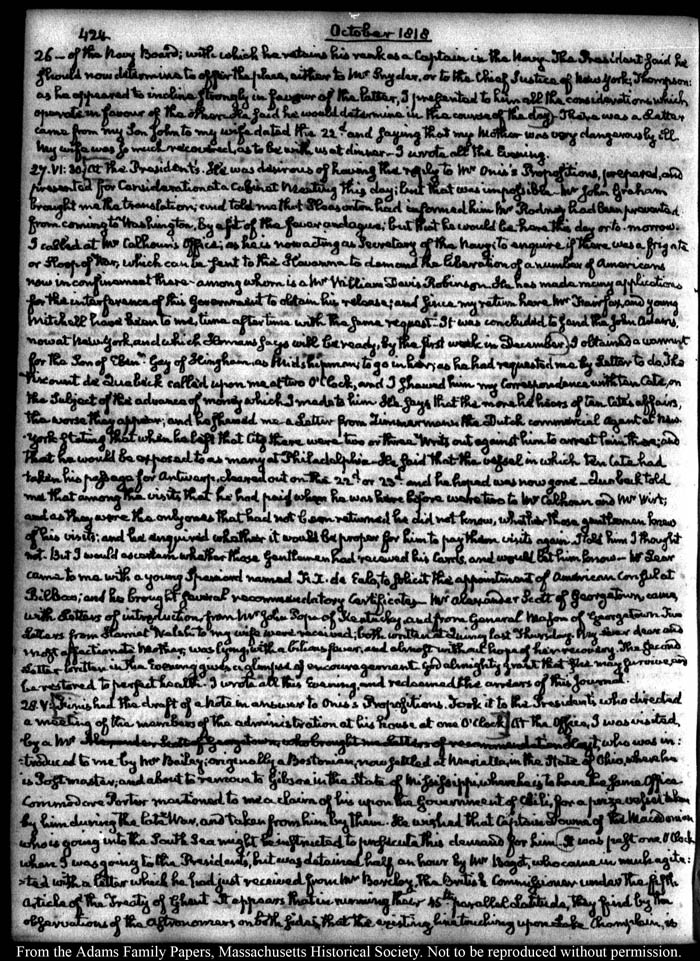 424
October 1818
26 — of the Navy Board; with which he retains his rank as a Captain in the Navy. The President said he
should now determine to offer the place, either to Mr Snyder, or to the Chief Justice of New York, Thompson:
as he appeared to incline strongly in favour of the latter, I presented to him all the considerations which
operate in favour of the other. He said he would determine in the course of the day. There was a Letter
came from my Son John to my wife dated the 22d and saying that my Mother was very dangerously ill.
My wife was so much recovered, as to be with us at dinner. I wrote all the Evening.
27. VI: 30. At the President's. He was desirous of having the reply to Mr Onis's Propositions, prepared, and
presented for Consideration at a Cabinet Meeting this day; but that was impossible. Mr John Graham
brought me the translation; and told me that Pleasonton had informed him Mr Rodney had been prevented
from coming to Washington, by a fit of the fever and ague; but that he would be here this day or to-morrow.
I called at Mr Calhoun's Office; as he is now acting as Secretary of the Navy; to enquire if there was a frigate
or Sloop of War, which can be sent to the Havanna to demand the liberation of a number of Americans
now in confinement there — among whom is a Mr William Davis Robinson. He has made many applications
for the interference of this Government to obtain his release; and since my return here Mr Fairfax, and young
Mitchell have been to me, time after time with the same request. It was concluded to send the John Adams,
now at New York, and which Homans says will be ready, by the first week in December. I obtained a warrant
for the Son of Eben. Gay of Hingham as Midshipman, to go in her; as he had requested me by Letter to do. The
Viscount de Quabeck called upon me at two O'Clock, and I shewed him my Correspondence with ten Cate, on
the Subject of the advance of money which I made to him. He says that the more he hears of ten Cate's affairs,
the worse they appear; and he shewed me a Letter from Zimmerman the Dutch commercial agent at New-
York stating that when he left that City there were two or three Writs out against him to arrest him there; and
that he would be exposed to as many at Philadelphia. He said that the vessel in which ten Cate had
taken his passage for Antwerp, cleared out on the 22d or 23d and he hoped was now gone. Quabeck told
me that among the visits that he had paid when he was here before were two to Mr Calhoun and Mr Wirt;
and as they were the only ones that had not been returned he did not know, whether those gentlemen knew
of his visits; and he enquired whether it would be proper for him to pay them visits again. I told him I thought
not. But I would ascertain whether those Gentlemen had received his Cards, and would let him know. Mr Lear
came to me with a young Spaniard named de to solicit the appointment of American Consul at
Bilbao; and he brought several recommendatory Certificates. Mr Alexander Scott of Georgetown came
with Letters of introduction from Mr John Pope of Kentucky and from General Mason of Georgetown. Two
Letters from Harriet Welsh to my wife were received; both written at Quincy last Thursday. My ever dear and
most affectionate Mother, was lying, with a bilious fever, and almost without hope of her recovery. The Second
Letter written in the Evening gives a glimpse of encouragement. God almighty grant that She may survive, and
be restored to perfect health. I wrote all this Evening, and redeemed the arrears of this Journal.
28. V: Finished the draft of a Note in answer to Onis's Propositions. Took it to the President's who directed
a meeting of the members of the administration at his house at one O'Clock. At the Office, I was visited,
by a Mr Alexander Scott of Georgetown, who brought me letters of recommendation Hoyt, who was in:
:troduced to me by Mr Bailey; originally a Bostonian, now settled at Marietta, in the State of Ohio, where he
is Postmaster; and about to remove to Gibson in the State of Mississippi, where he is to have the same Office.
Commodore Porter mentioned to me a claim of his upon the Government of Chili, for a prize vessel taken
by him during the late War, and taken from him by them. He wished that Captain Downes of the Macedonian
who is going into the South Sea might be instructed to prosecute this demand for him. It was past one O'Clock
when I was going to the President's, but was detained half an hour by Mr Bagot, who came in much agita:
:ted with a letter which he had just received from Mr Barclay, the British Commissioner under the fifth
Article of the Treaty of Ghent. It appears that in running their 45th parallel Latitude, they find by the
observations of the Astronomers on both sides, that the existing line touching upon Lake Champlain, is
From the Adams Family Papers, Massachusetts Historical Society. Not to be reproduced without permission.